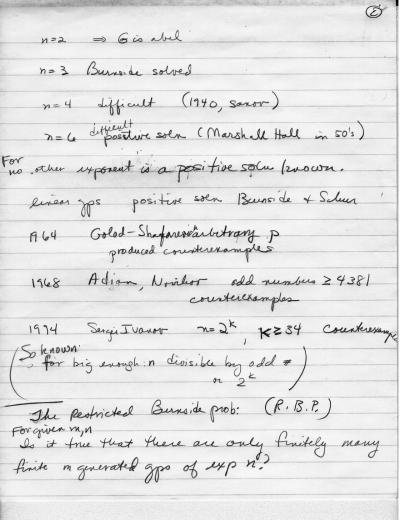 ②
n=2 ⇒ G is abel
n=3 Burnside solved
n=4 difficult (1940, sanov)
n=6 difficult positive soln (Marshall Hall in 50's)
For no other exponent is a positive soln known.
linear gps positive soln Burnside & Schur
1964 Golod-Shafarevich arbitrary p
produced counterexamples
1968 Adian, Novikov odd numbers ≥ 4381
counterexamples
1994 Sergei Ivanov n=2^k, k≥34 counterexample
(So known:
for big enough n divisible by odd #
or 2^k)
The Restricted Burnside prob: (R.B.P.)
For given m,n
Is it true that there are only finitely many
finite m generated gps of exp n?